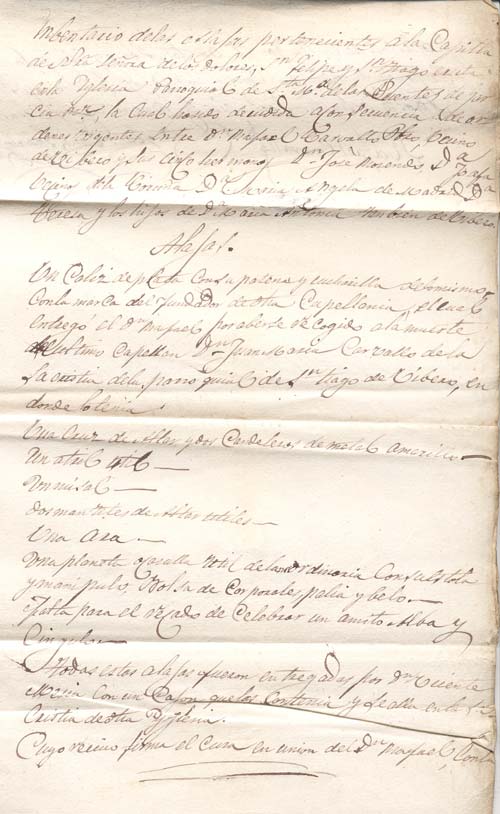 Imbentario de las echafas pertenecientes á la Capilla
de Ntra Señora de los Dolores, Sn Felipe y Sn Tiago en la
Iglesia Parroquial de Sta Ma de las Puentes de
la Cual ha de dividida a consecuencia de or
denes vigentes entre Dn Rafael Carvallo Vecino
de Vibero y sus cinco hermanos Dn José Da
vecino de la Coruña Da Angela de Da
Teresa y los hijos de Da Maria Antonia tambien de Vibero.
Alajas.
Un Caliz de plata con su patena y cucharilla de lo mismo
con la marca del fundador de dha Capellania, el cual
entregó el Dn Rafael por aberse recogido a la muerte
del ultimo Capellan Dn Juan Maria Carvallo de la
sacristia de la parroquial de Sn Tiago de Vibero, en
donde lo tenia.
Una Cruz de Altar y dos Candeleros de metal amarillo—
Un atril util—
Un misal—
dos manteles de Altar utiles—
Una Ara—
Una planeta o casulla util de la ordinaria con su Estola
y manipulo, Bolsa de Corporales pelia y belo—
falta para el rezado de Celebrar un amito Alba y
Cingulo—
Todas estas alajas fueron entregadas por Dn Vicente
Mecia con un Cajon que los contenia y se alla en la Sa
Cristia de dha Yglesia.
Cuyo recivo firma el Cura en union del Dn Rafael,